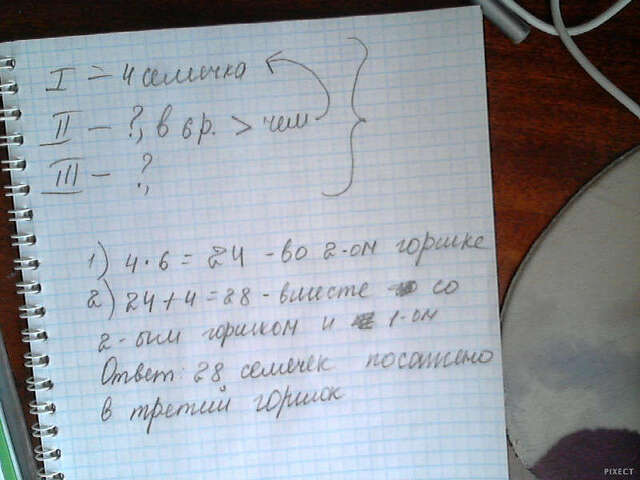 I – 4 семечка
II – ?, в 6 р. > чем
III – ?
1) 4·6=24 – во 2-ом горшке
2) 24+4=28 – вместе со
2-ым горшком и 1-ом
Ответ: 28 семечек посажено
в третий горшок
PIXECT